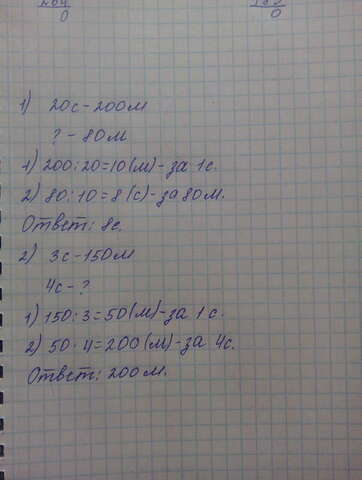 0 0
1) 20с - 200м
? - 80м
1) 200:20=10(м)-за 1с.
2) 80:10=8(с)-за 80м.
Ответ: 8с.
2) 3с-150м
4с-?
1) 150:3=50(м)-за 1с.
2) 50·4=200(м)-за 4с.
Ответ: 200м.